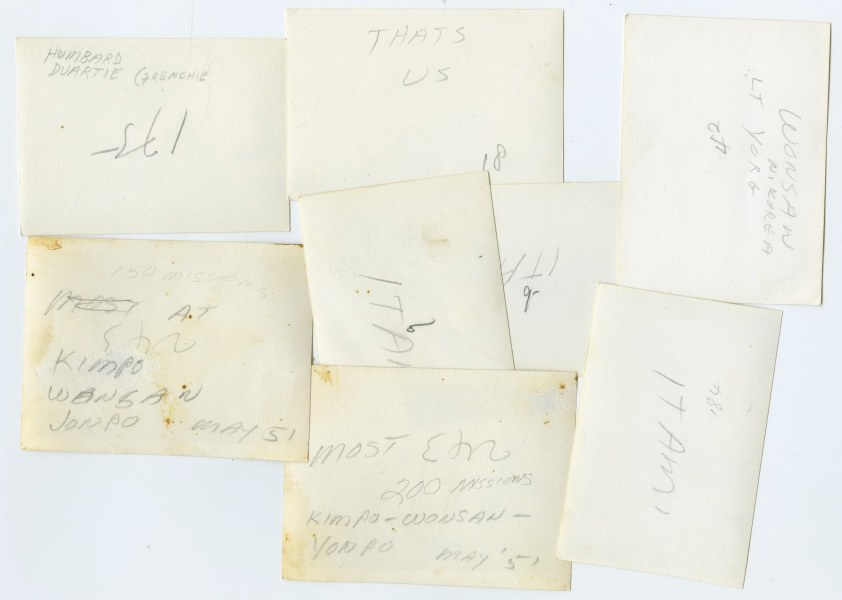 HUMBARD
DUARTIE GRENCHIE
175
THATS
US
18
WONSAN
N. KOREA
LT YORG
42
150 MISSIONS
MOST AT
KIMPO
WANSAN
JONPO MAY 51
ITAMI
9
ITA
9
MOST
200 MISSIONS
KIMPO-WONSAN-
YONPO MAY '51
ITAMI
184